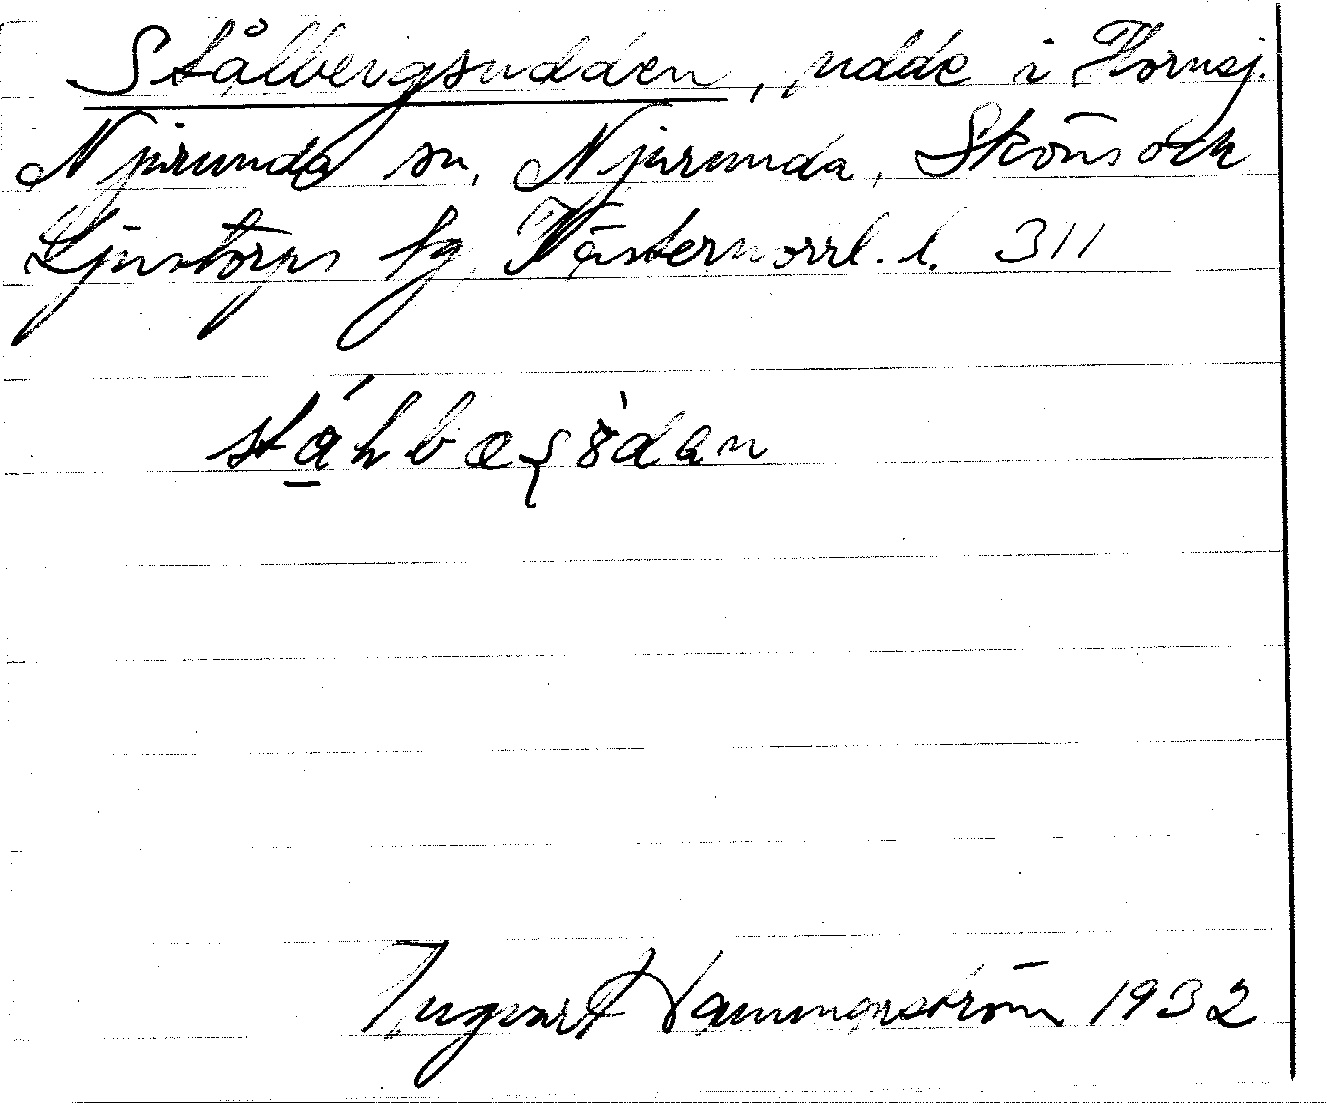 Stålbergsudden, udde i Hornsj.
Njurunda sn, Njurunda, Sköns och
Ljustorps tg, Västernorrl. l. 311
Ingvart Hammarström 1932